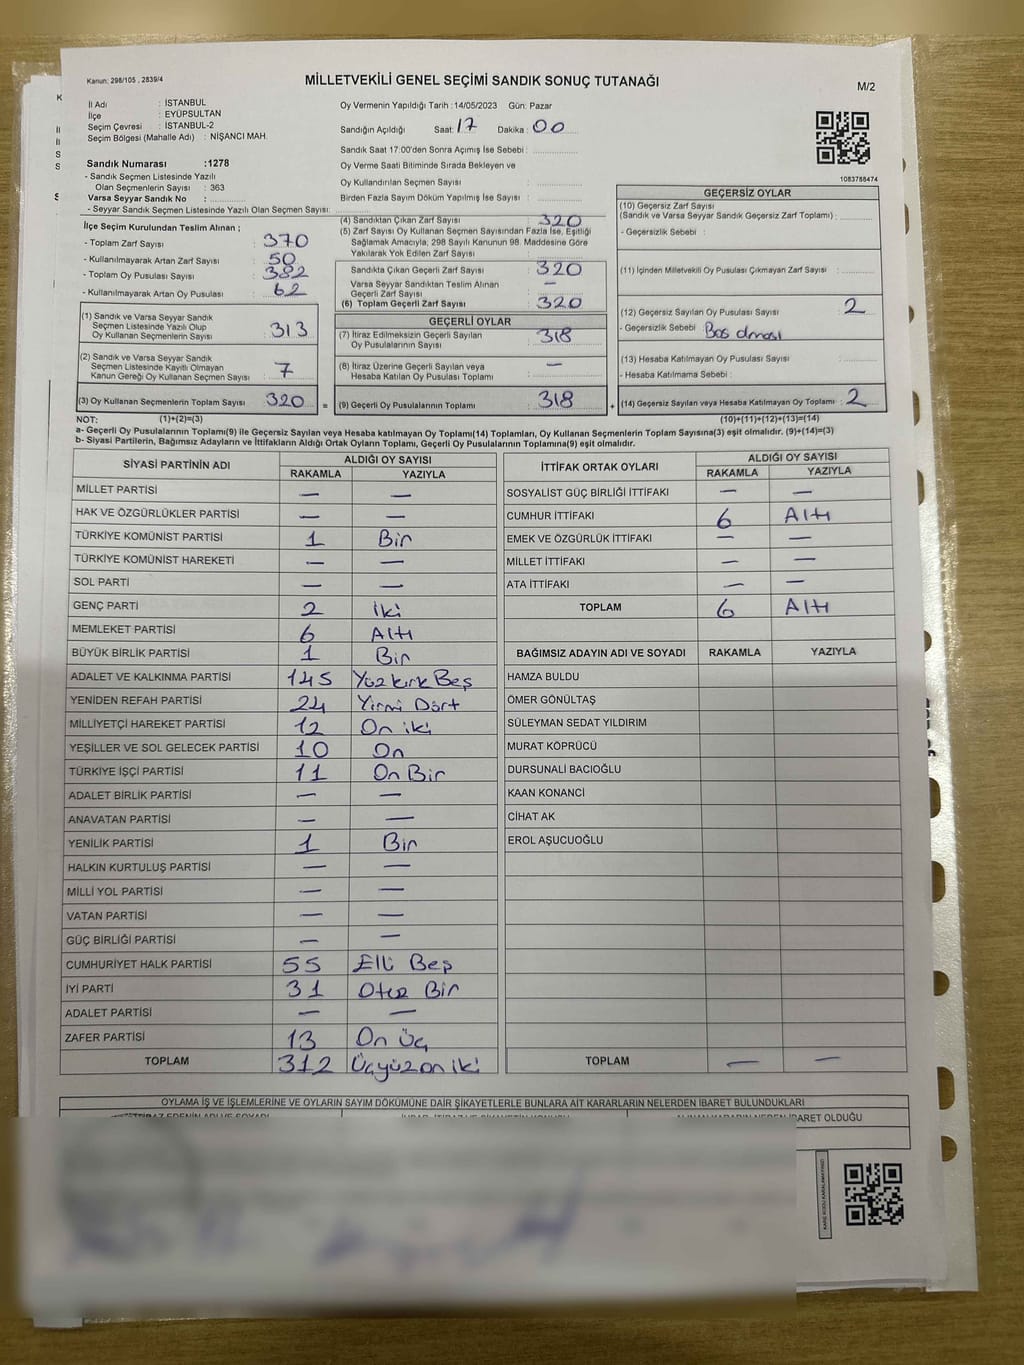 Kanun: 298/105 , 2839/4
MİLLETVEKİLİ GENEL SEÇİMİ SANDIK SONUÇ TUTANAĞI
M/2
İl Adı : İSTANBUL
İlçe : EYÜPSULTAN
Seçim Çevresi : İSTANBUL-2
Seçim Bölgesi (Mahalle Adı) : NİŞANCI MAH.
Sandık Numarası :1278
- Sandık Seçmen Listesinde Yazılı
Olan Seçmenlerin Sayısı : 363
Varsa Seyyar Sandık No :
- Seyyar Sandık Seçmen Listesinde Yazılı Olan Seçmen Sayısı:
Oy Vermenin Yapıldığı Tarih : 14/05/2023 Gün: Pazar
Sandığın Açıldığı Saat: 17 Dakika : 00
Sandık Saat 17:00'den Sonra Açımış İse Sebebi :
Oy Verme Saati Bitiminde Sırada Bekleyen ve
Oy Kullandırılan Seçmen Sayısı :
Birden Fazla Sayım Döküm Yapılmış İse Sayısı :
1083788474
İlçe Seçim Kurulundan Teslim Alınan ;
- Toplam Zarf Sayısı : 370
- Kullanılmayarak Artan Zarf Sayısı : 50
- Toplam Oy Pusulası Sayısı : 382
- Kullanılmayarak Artan Oy Pusulası : 62
(1) Sandık ve Varsa Seyyar Sandık
Seçmen Listesinde Yazılı Olup
Oy Kullanan Seçmenlerin Sayısı : 313
(2) Sandık ve Varsa Seyyar Sandık
Seçmen Listesinde Kayıtlı Olmayan
Kanun Gereği Oy Kullanan Seçmen Sayısı : 7
(3) Oy Kullanan Seçmenlerin Toplam Sayısı : 320
(4) Sandıktan Çıkan Zarf Sayısı : 320
(5) Zarf Sayısı Oy Kullanan Seçmen Sayısından Fazla İse, Eşitliği
Sağlamak Amacıyla; 298 Sayılı Kanunun 98. Maddesine Göre
Yakılarak Yok Edilen Zarf Sayısı :
Sandıkta Çıkan Geçerli Zarf Sayısı : 320
Varsa Seyyar Sandıktan Teslim Alınan
Geçerli Zarf Sayısı : —
(6) Toplam Geçerli Zarf Sayısı : 320
GEÇERLİ OYLAR
(7) İtiraz Edilmeksizin Geçerli Sayılan
Oy Pusulalarının Sayısı : 318
(8) İtiraz Üzerine Geçerli Sayılan veya
Hesaba Katılan Oy Pusulası Toplamı : —
= (9) Geçerli Oy Pusulalarının Toplamı : 318
GEÇERSİZ OYLAR
(10) Geçersiz Zarf Sayısı
(Sandık ve Varsa Seyyar Sandık Geçersiz Zarf Toplamı) :
- Geçersizlik Sebebi :
(11) İçinden Milletvekili Oy Pusulası Çıkmayan Zarf Sayısı :
(12) Geçersiz Sayılan Oy Pusulası Sayısı : 2
- Geçersizlik Sebebi : Boş olması
(13) Hesaba Katılmayan Oy Pusulası Sayısı :
- Hesaba Katılmama Sebebi :
+ (14) Geçersiz Sayılan veya Hesaba Katılmayan Oy Toplamı : 2
NOT: (1)+(2)=(3) (10)+(11)+(12)+(13)=(14)
a- Geçerli Oy Pusulalarının Toplamı(9) ile Geçersiz Sayılan veya Hesaba katılmayan Oy Toplamı(14) Toplamları, Oy Kullanan Seçmenlerin Toplam Sayısına(3) eşit olmalıdır. (9)+(14)=(3)
b- Siyasi Partilerin, Bağımsız Adayların ve İttifakların Aldığı Ortak Oyların Toplamı, Geçerli Oy Pusulalarının Toplamına(9) eşit olmalıdır.
SİYASİ PARTİNİN ADI ALDIĞI OY SAYISI
RAKAMLA YAZIYLA
MİLLET PARTİSİ — —
HAK VE ÖZGÜRLÜKLER PARTİSİ — —
TÜRKİYE KOMÜNİST PARTİSİ 1 Bir
TÜRKİYE KOMÜNİST HAREKETİ — —
SOL PARTİ — —
GENÇ PARTİ 2 iki
MEMLEKET PARTİSİ 6 Altı
BÜYÜK BİRLİK PARTİSİ 1 Bir
ADALET VE KALKINMA PARTİSİ 145 Yüz kırk Beş
YENİDEN REFAH PARTİSİ 24 Yirmi Dört
MİLLİYETÇİ HAREKET PARTİSİ 12 On iki
YEŞİLLER VE SOL GELECEK PARTİSİ 10 On
TÜRKİYE İŞÇİ PARTİSİ 11 On Bir
ADALET BİRLİK PARTİSİ — —
ANAVATAN PARTİSİ — —
YENİLİK PARTİSİ 1 Bir
HALKIN KURTULUŞ PARTİSİ — —
MİLLİ YOL PARTİSİ — —
VATAN PARTİSİ — —
GÜÇ BİRLİĞİ PARTİSİ — —
CUMHURİYET HALK PARTİSİ 55 Elli Beş
İYİ PARTİ 31 Otuz Bir
ADALET PARTİSİ — —
ZAFER PARTİSİ 13 On Üç
TOPLAM 312 Üçyüz on iki
İTTİFAK ORTAK OYLARI ALDIĞI OY SAYISI
RAKAMLA YAZIYLA
SOSYALİST GÜÇ BİRLİĞİ İTTİFAKI — —
CUMHUR İTTİFAKI 6 Altı
EMEK VE ÖZGÜRLÜK İTTİFAKI — —
MİLLET İTTİFAKI — —
ATA İTTİFAKI — —
TOPLAM 6 Altı
BAĞIMSIZ ADAYIN ADI VE SOYADI RAKAMLA YAZIYLA
HAMZA BULDU
ÖMER GÖNÜLTAŞ
SÜLEYMAN SEDAT YILDIRIM
MURAT KÖPRÜCÜ
DURSUNALİ BACIOĞLU
KAAN KONANCİ
CİHAT AK
EROL AŞUCUOĞLU
TOPLAM — —
OYLAMA İŞ VE İŞLEMLERİNE VE OYLARIN SAYIM DÖKÜMÜNE DAİR ŞİKAYETLERLE BUNLARA AİT KARARLARIN NELERDEN İBARET BULUNDUKLARI
İTİRAZ EDENİN ADI VE SOYADI ALINAN KARARIN NEDEN İBARET OLDUĞU